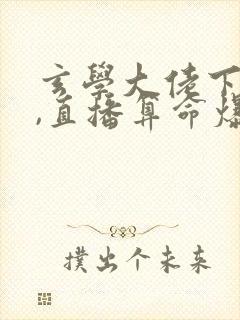 玄學大佬下
,直播算命爆
撲出个未来